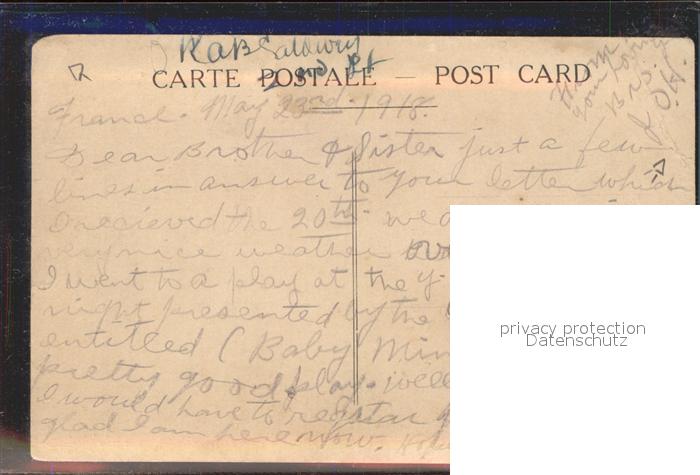 2nd Lt
CARTE POSTALE — POST CARD
from
your Loving
Bro.
France. May 23rd 1918.
Dear Brother & Sister just a few
lines in answer to your letter which
I recieved the 20th. we
very nice weather
I went to a play at the Y.
night presented by the
entitled (Baby Min
pretty good play. well
I would have to
glad I am here now.
privacy protection
Datenschutz